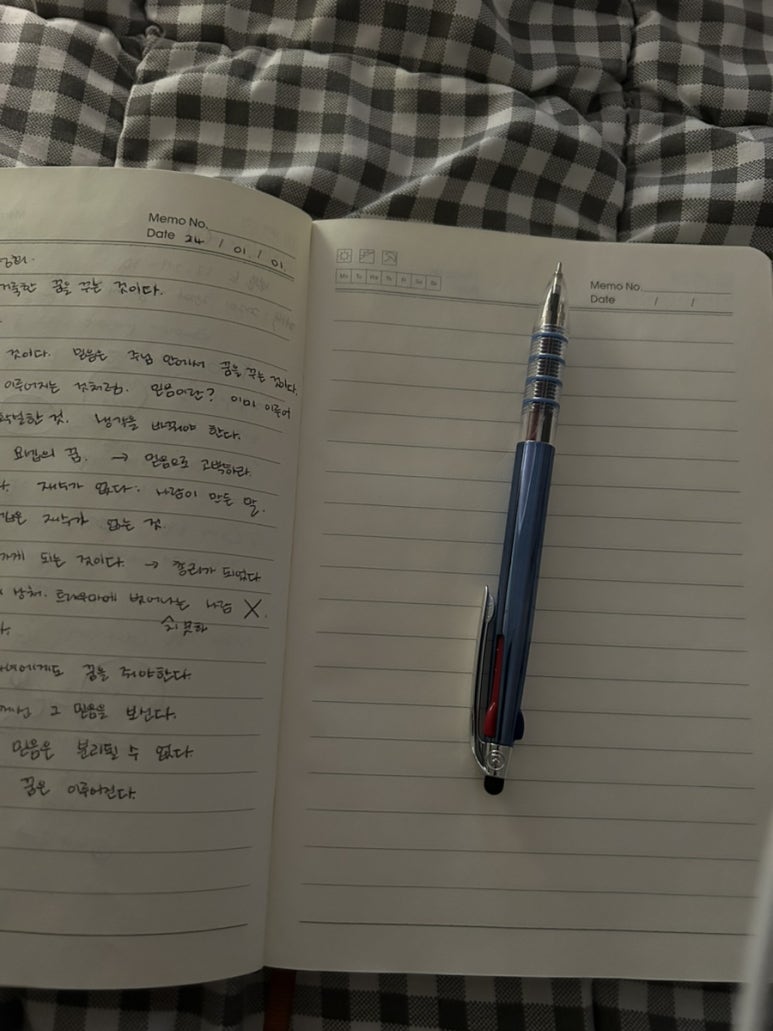 Memo No.
Date 24 / 01 / 01
꿈을 꾸는 것이다.
것이다. 믿음은 주님 안에서 꿈을 꾸는 것이다.
이루어지는 것처럼. 믿음이란? 이미 이루어
한 것. 생각을 바꿔야 한다.
요셉의 꿈. → 믿음으로 고백하라.
재수가 없다. 사람이 만든 말.
재수가 없는 것.
되는 것이다. → 총리가 되었다
상처. 트라우마에 벗어나는 사람 X.
지 못하
에게도 꿈을 줘야한다.
그 믿음을 보신다.
믿음은 분리될 수 없다.
꿈은 이루어진다.
Mo Tu We Th Fr Sa Su
Memo No.
Date / /